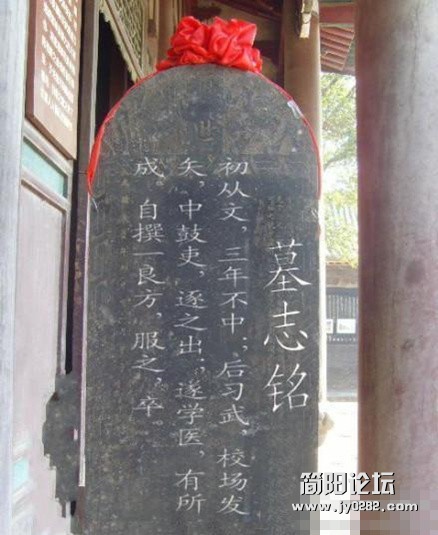 墓志铭
初从文，三年不中；后习武，校场发
矢，中鼓吏，逐之出；遂学医，有所
成。自撰一良方，服之，卒。
简阳论坛
www.jy0288.com